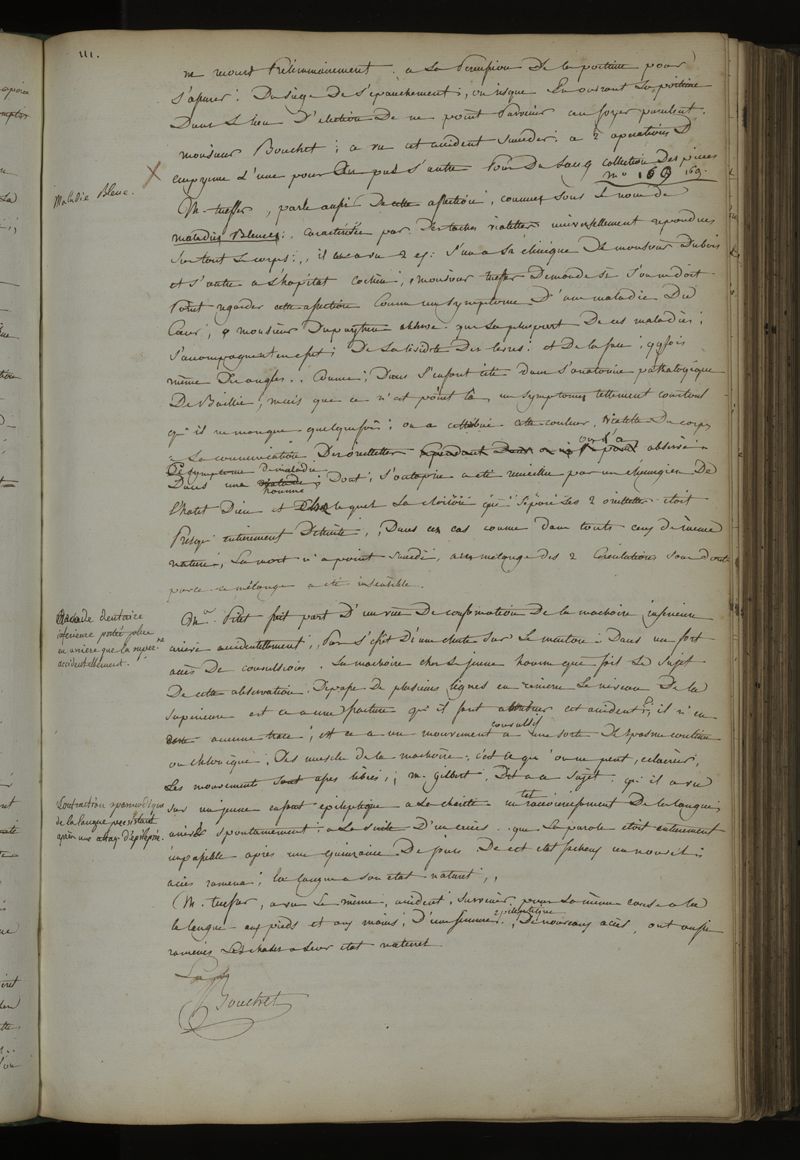 111.
ne mourt préliminairement à la percusion De la poitrine pour
s'assurer Du siége De l'épanchement; on risque En ouvrant la poitrine
Dans le lieu D'election De ne point parvenir au foyer purulent.
monsieur Bouchet; a vu cet accident succeder a 2 operations D
empyeme L'une pour Du pus l'autre Pour Du sang collection Des pieces
no 169 169.
Maladie Bleue.
M. tuefser, parle aussi De cette affection, connue sous le nom de
maladies Bleues; caracterisée par Des taches violettes universellement repandues
sur tout le corps; il en a vu 2 ex: l'un a la clinique De monsieur Dubois
et l'autre a L'hopital cochin, monsieur tuefser Demande si l'on ne doit
point regarder cette affection Comme un symptome D'une maladie Du
Coeur; monsieur Dupuytren observe que la plupart De ces maladies;
s'accompagnent en effet; De la lividité Des levres: et De la face;
même Des ongles.. Comme; Dans l'enfant cité Dans l'anatomie pathologique
De Baillie; mais que ce n'est point là un symptome tellement constant
qu'il ne manque quelquefois; on a attribué cette couleur violette Du corps
à la communication Des oreillettes on l'a observé
Ce symptome De maladie
Dans une homme; Dont l'autopsie a été recueillie par un chirurgien De
l'hotel Dieu et chez lequel La cloison qui sépare les 2 oreillettes étoit
presque entierement Détruite; Dans ces cas comme dans touts ceux de meme
nature, La mort n'a point succédé, au mélange des 2 Circulations sans doute
parce ce mélange a été insensible.
Arcade dentaire
inférieure portée plus
en arriere que la super.ne
accidentellement.
Mr. Petet fait part D'un vice De conformation De la machoire inferieure
arrivé accidentellement, Par l'effet D'une chute sur le menton: Dans un fort
accès De convulsions. La machoire chez le jeune homme que fait le sujet
De cette observation, Depasse De plusieurs lignes en arriere Le niveau De la
superieure est ce a une fracture qu'il faut attribuer cet accident; il n'en
existe aucune trace; est ce a un mouvement convulsif a une sorte De spasme continu
ou chronique, Des muscles de la machoire; c'est ce que l'on ne peut éclaircir,
Les mouvements sont assez libres; m. Gilbert, Dit a ce sujet: qu'il a vu
Contraction spasmodique
de la langue persistant
après une attaque d'épilepsie.
sur un jeune enfant epileptique a la chûte un tel racornissement De la langue,
arrivé spontanement; a La suite D'un accès. que La parole étoit entierement
impossible après une quinzaine De jours De cet etat facheux un nouvel
accès ramena; la langue a son etat naturel,,
(M. tuefser, a vu le même, accident, survenir pour La même cause a la
la langue aux pieds et aux mains; D'une femme epileptique; De nouveaux accès, ont aussi
ramenés Les choses a leur etat naturel
Bouchet